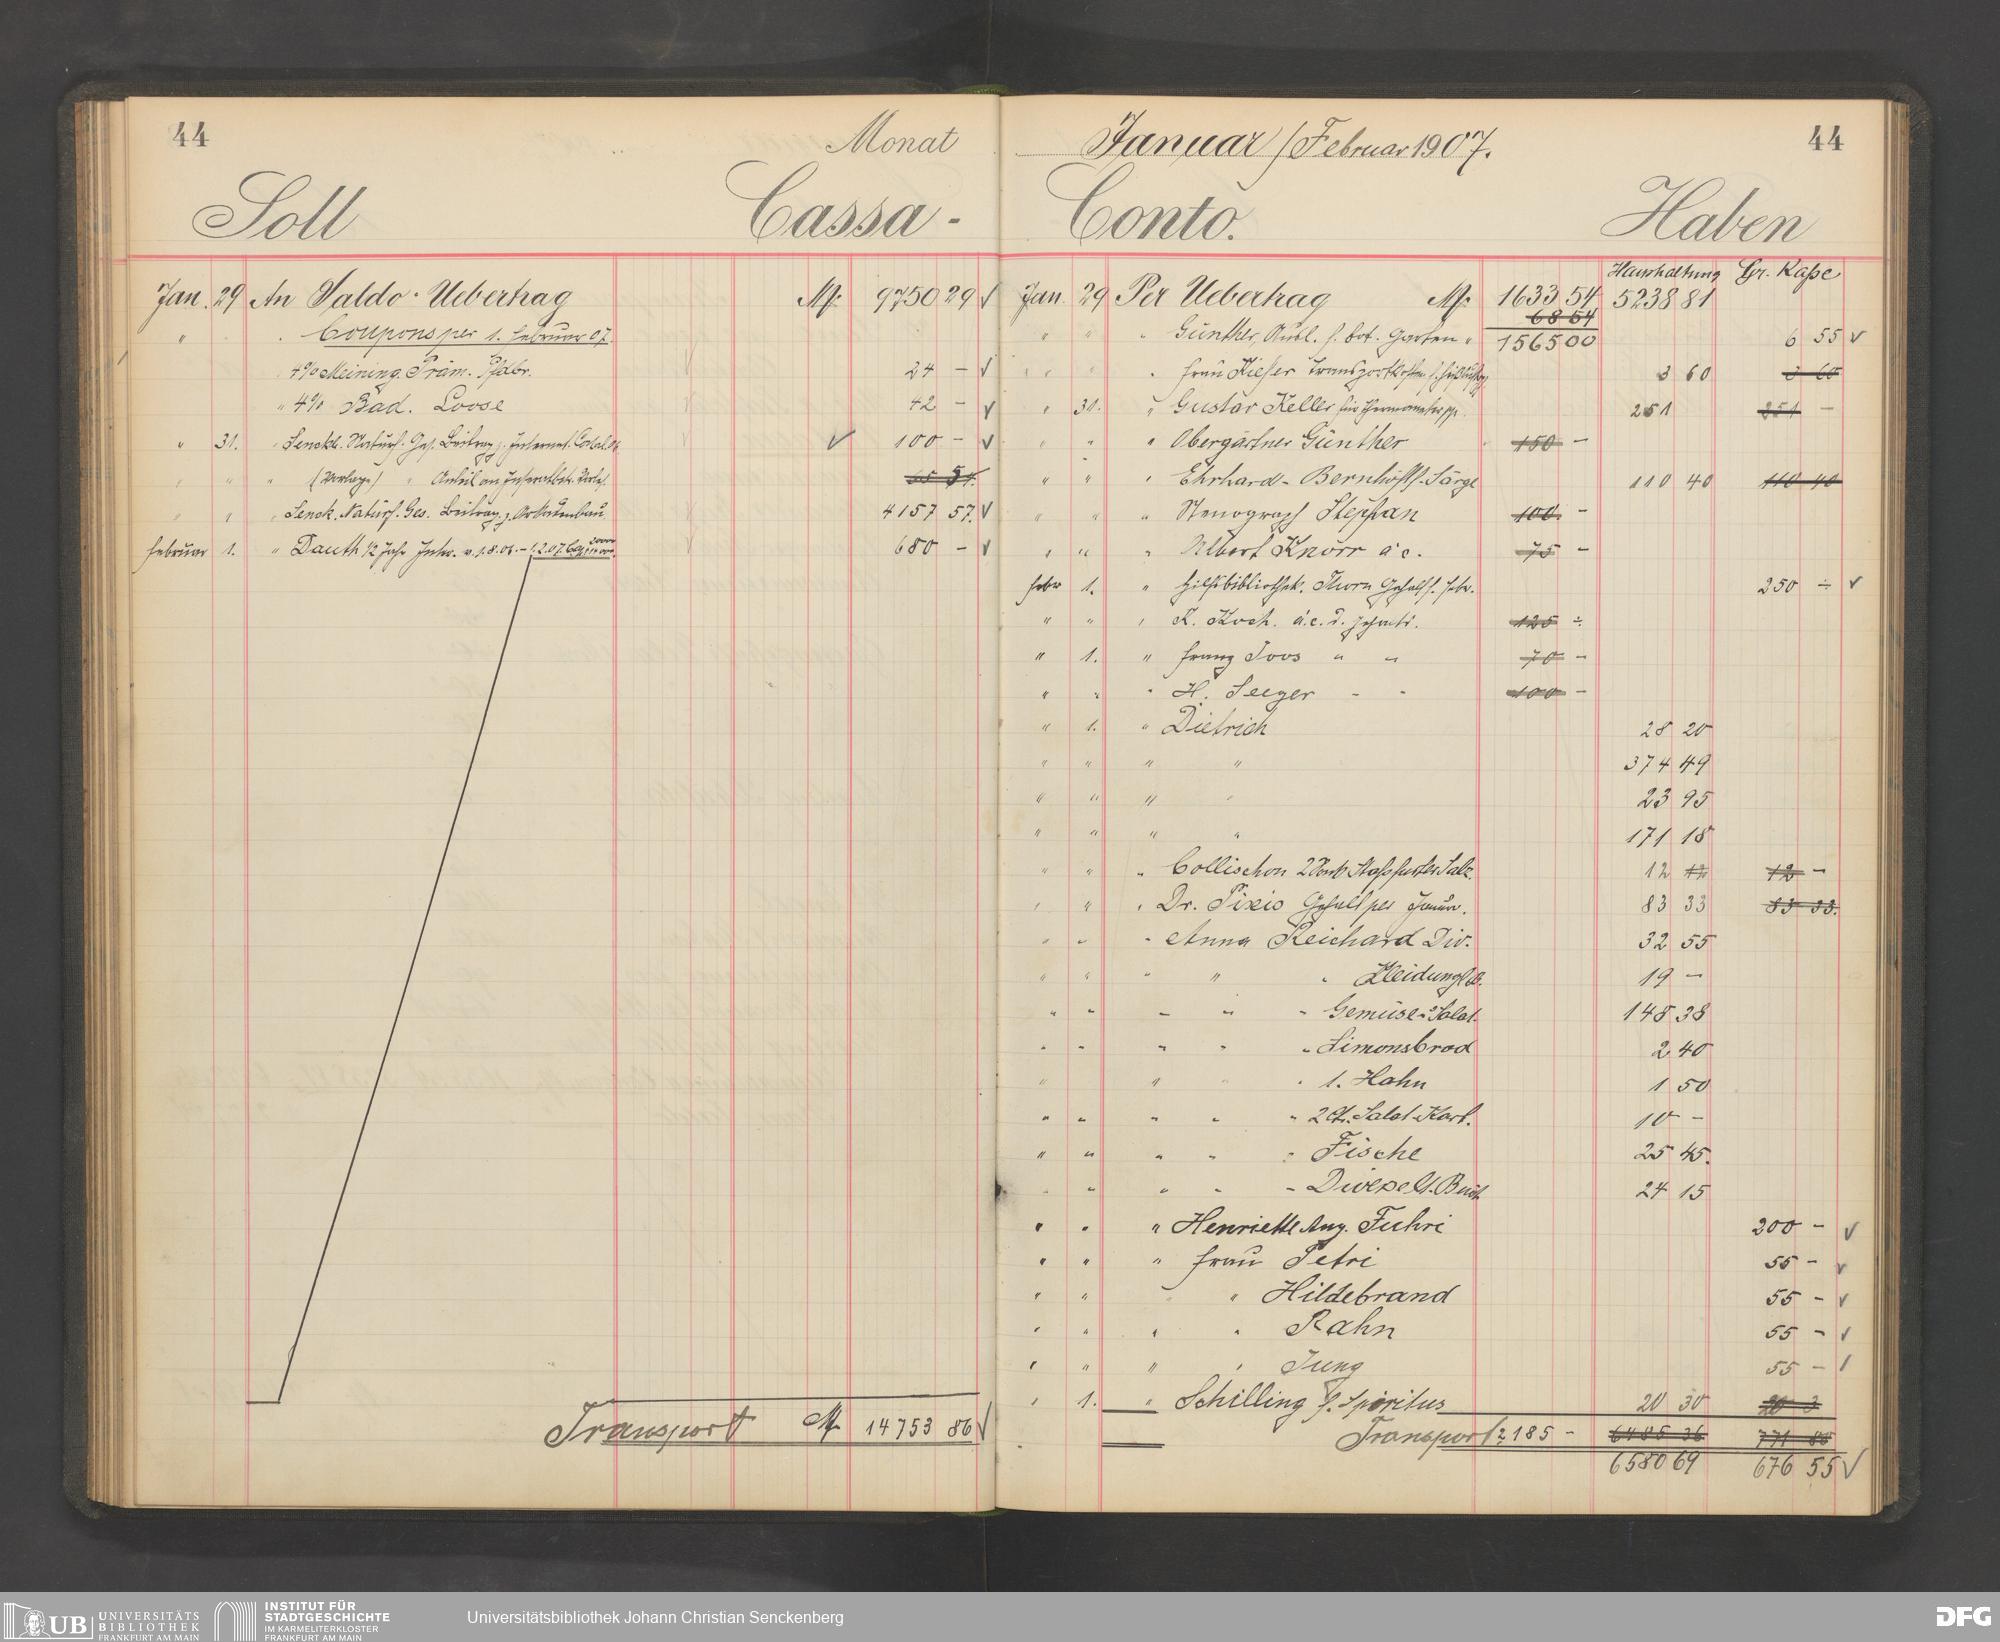 44 Monat
Soll Cassa-
Jan. 29 An Saldo-Uebertrag M: 9750 29 √
" " Coupons per 1. Februar 07.
4% Meining. Präm. Pfdbr. 24 – √
" 4% Bad. Loose 42 – √
" 31. " Senckb. Naturf. Ges. Beitrag z. Internat. √ 100 – √
" " " (Vorlage) " 65 54.
" " " Senck. Naturf. Ges. Beitrag z. 4157 57. √
Februar 1. " Dauth ½ Jahr Inter. v. 1.8.06.–1.2.07. 680 – √
Transport M 14753 86 √
Januar/Februar 1907. 44
Conto. Haben
Haushaltung Gr. Kaße
Jan. 29 Per Uebertrag M: 1633 54 5238 81
68 54
" " " Günther, Ausl. f. bot. Garten " 1565 00 6 55 √
" " " Frau Kiefer Transportkosten 3 60 3 60
" 31. " Gustav Keller für Thermometer pp. 251 251 –
" " " Obergärtner Günther 150 –
" " " Ehrhard- Särge 110 40 110 40
" " " Stenograph Stephan 100. –
" " " Albert Knörr a.c. 75 –
Febr 1. " Hilfsbibliothek. Thorn Gehalt f. Febr. 250 ÷ √
" " " K. Koch. a.c. d. Gehalts. 125 ÷
" 1. " Franz Joos " " 70 –
" " " H. Seeger - - 100 –
" 1. " Dietrich 28 20
" " " " 374 49
" " " " 23 95
" " " " 171 18
" " " Collischon 2 Staßfurter Salz. 12 12 12 –
" " " Dr. Pixis Gehalt per Januar. 83 33 83 33.
" " " Anna Reichard Div. 32 55
" " " " " Kleidung 19 –
" " " " " Gemüse u. Salat. 148 38
" " " " " Simonsbrod 2 40
" " " " 1. Hahn 1 50
" " " " " 2 Ctr. Salat-Kart. 10 –
" " " " " Fische 25 45.
" " " " " Diverse 24 15
" " " Henriette Aug. Fuhri 200 – √
" " " Frau Petri 55 – √
" " " " Hildebrand 55 – √
" " " " Rahn 55 – √
" " " " Jung 55 – √
" 1. " Schilling f. Spiritus 20 30 20 3
Transport 2185 – 6485 36 771 88
6580 69 676 55 √
UB UNIVERSITÄTS
BIBLIOTHEK
FRANKFURT AM MAIN
INSTITUT FÜR
STADTGESCHICHTE
IM KARMELITERKLOSTER
FRANKFURT AM MAIN
Universitätsbibliothek Johann Christian Senckenberg
DFG